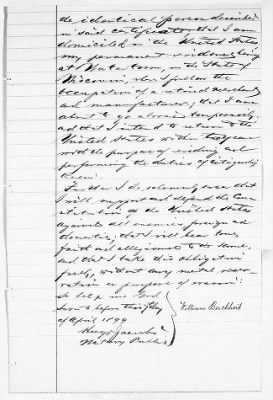 the identical person described
in said certificate; that I am
domiciled in the United States,
my permanent residence being
at Watertown in the State of
Wisconsin, where I follow the
occupation of a retired merchant
and manufacturer; that I am
about to go abroad temporarily,
and that I intend to return to the
United States within
with the purpose of residing and
performing the duties of citizenship
therein.
Further I do solemnly swear that
I will support and defend the Con-
stitution of the United States
against all enemies foreign and
domestic; that I will bear true
faith and allegiance to the same,
and that I take this obligation
freely, without any mental reser-
vation or purpose of evasion:
So help me God.
Sworn to before me this day
of April 1899
William Buchheit
Hugo Jacobi
Notary Public